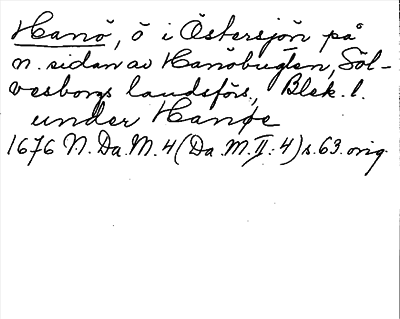 Hanö, ö i Östersjön på
n. sidan av Hanöbugten, Söl-
vesborgs landsförs., Blek. l.
under Hanøe
1676 N. Da. M. 4 (Da. M. II: 4) s. 63. orig.